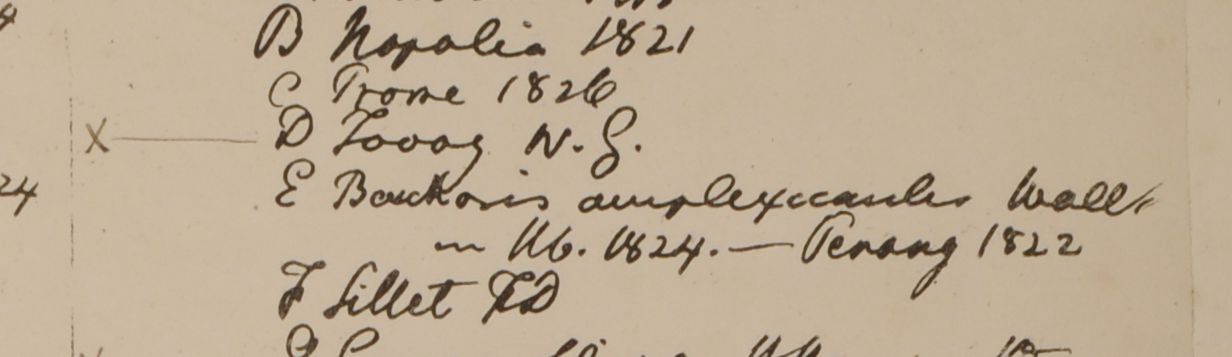 B Napalia 1821
C Prome 1826
X — D Tavoy W. G.
E Bauckoris amplexicaulis Wall
in Hb. 1824. — Penang 1822
F Sillet FD